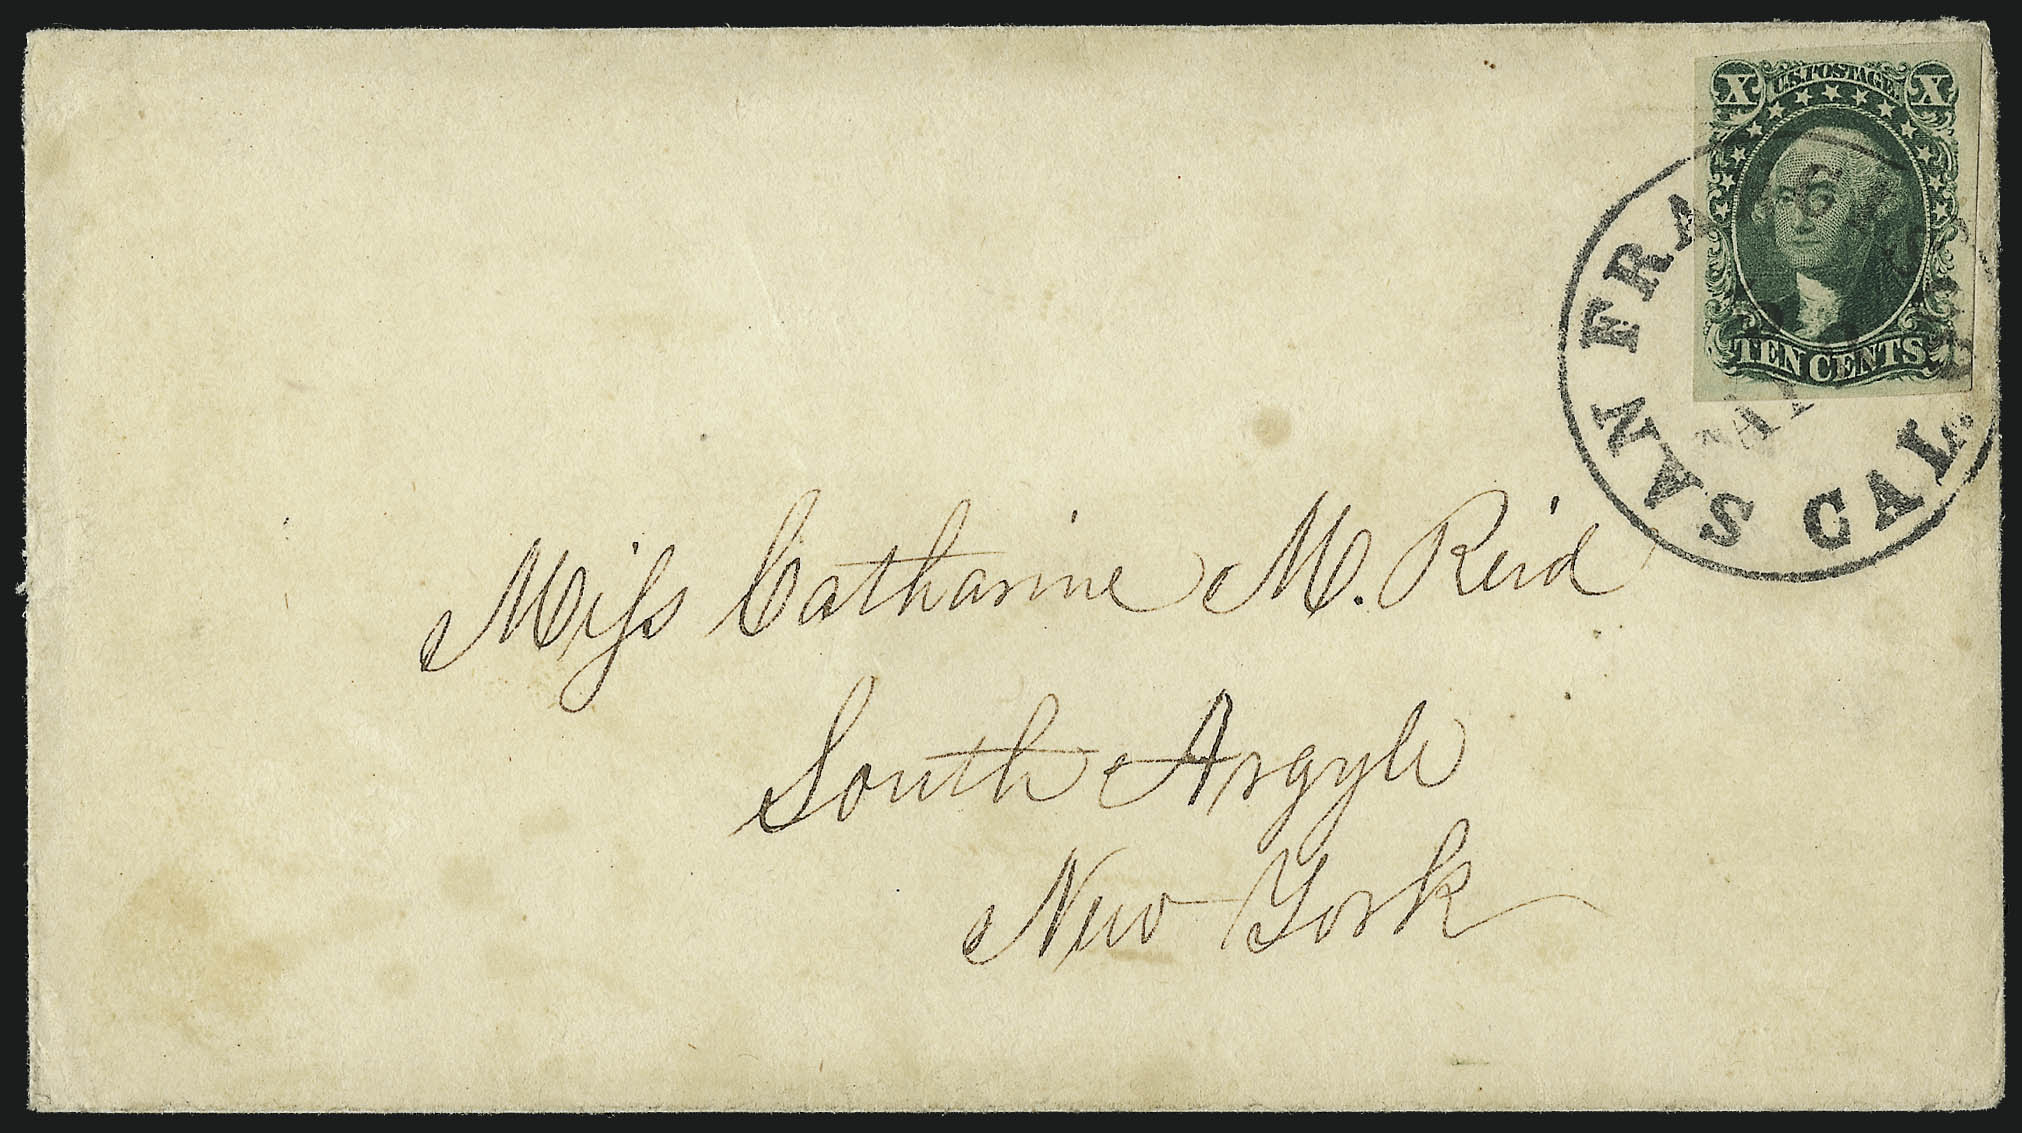 X U.S. POSTAGE. X
TEN CENTS
SAN FRA
CAL.
Miss Catharine M. Reid
South Argyle
New York